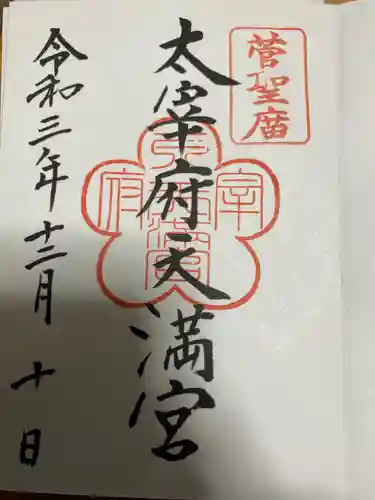 菅聖廟
太宰府天満宮
令和三年十二月十日